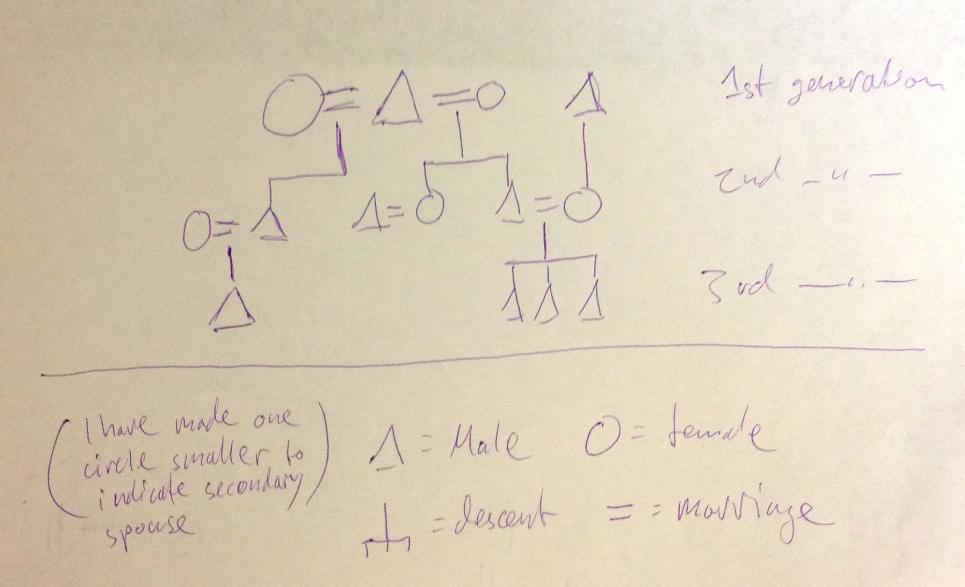 1st generation
2nd — " —
3rd — " —
(I have made one
circle smaller to
indicate secondary
spouse)
Δ = Male O = female
= descent = : marriage